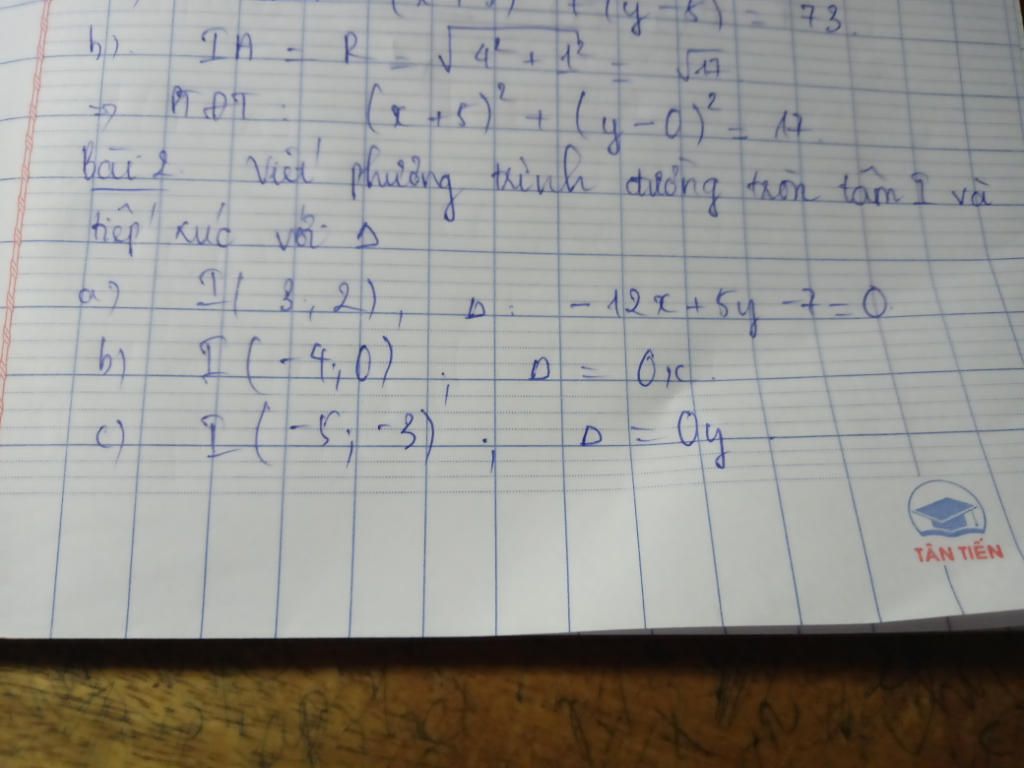 (y - 5) = 73.
b). IA = R = √4² + 1² = √17
=> PTĐT: (x + 5)² + (y - 0)² = 17.
Bài 2. Viết phương trình đường tròn tâm I và
tiếp xúc với Δ
a) I( 3; 2), Δ: -12x + 5y - 7 = 0.
b) I ( -4; 0) ; Δ = Ox.
c) I ( -5; -3) ; Δ = Oy
TÂN TIẾN